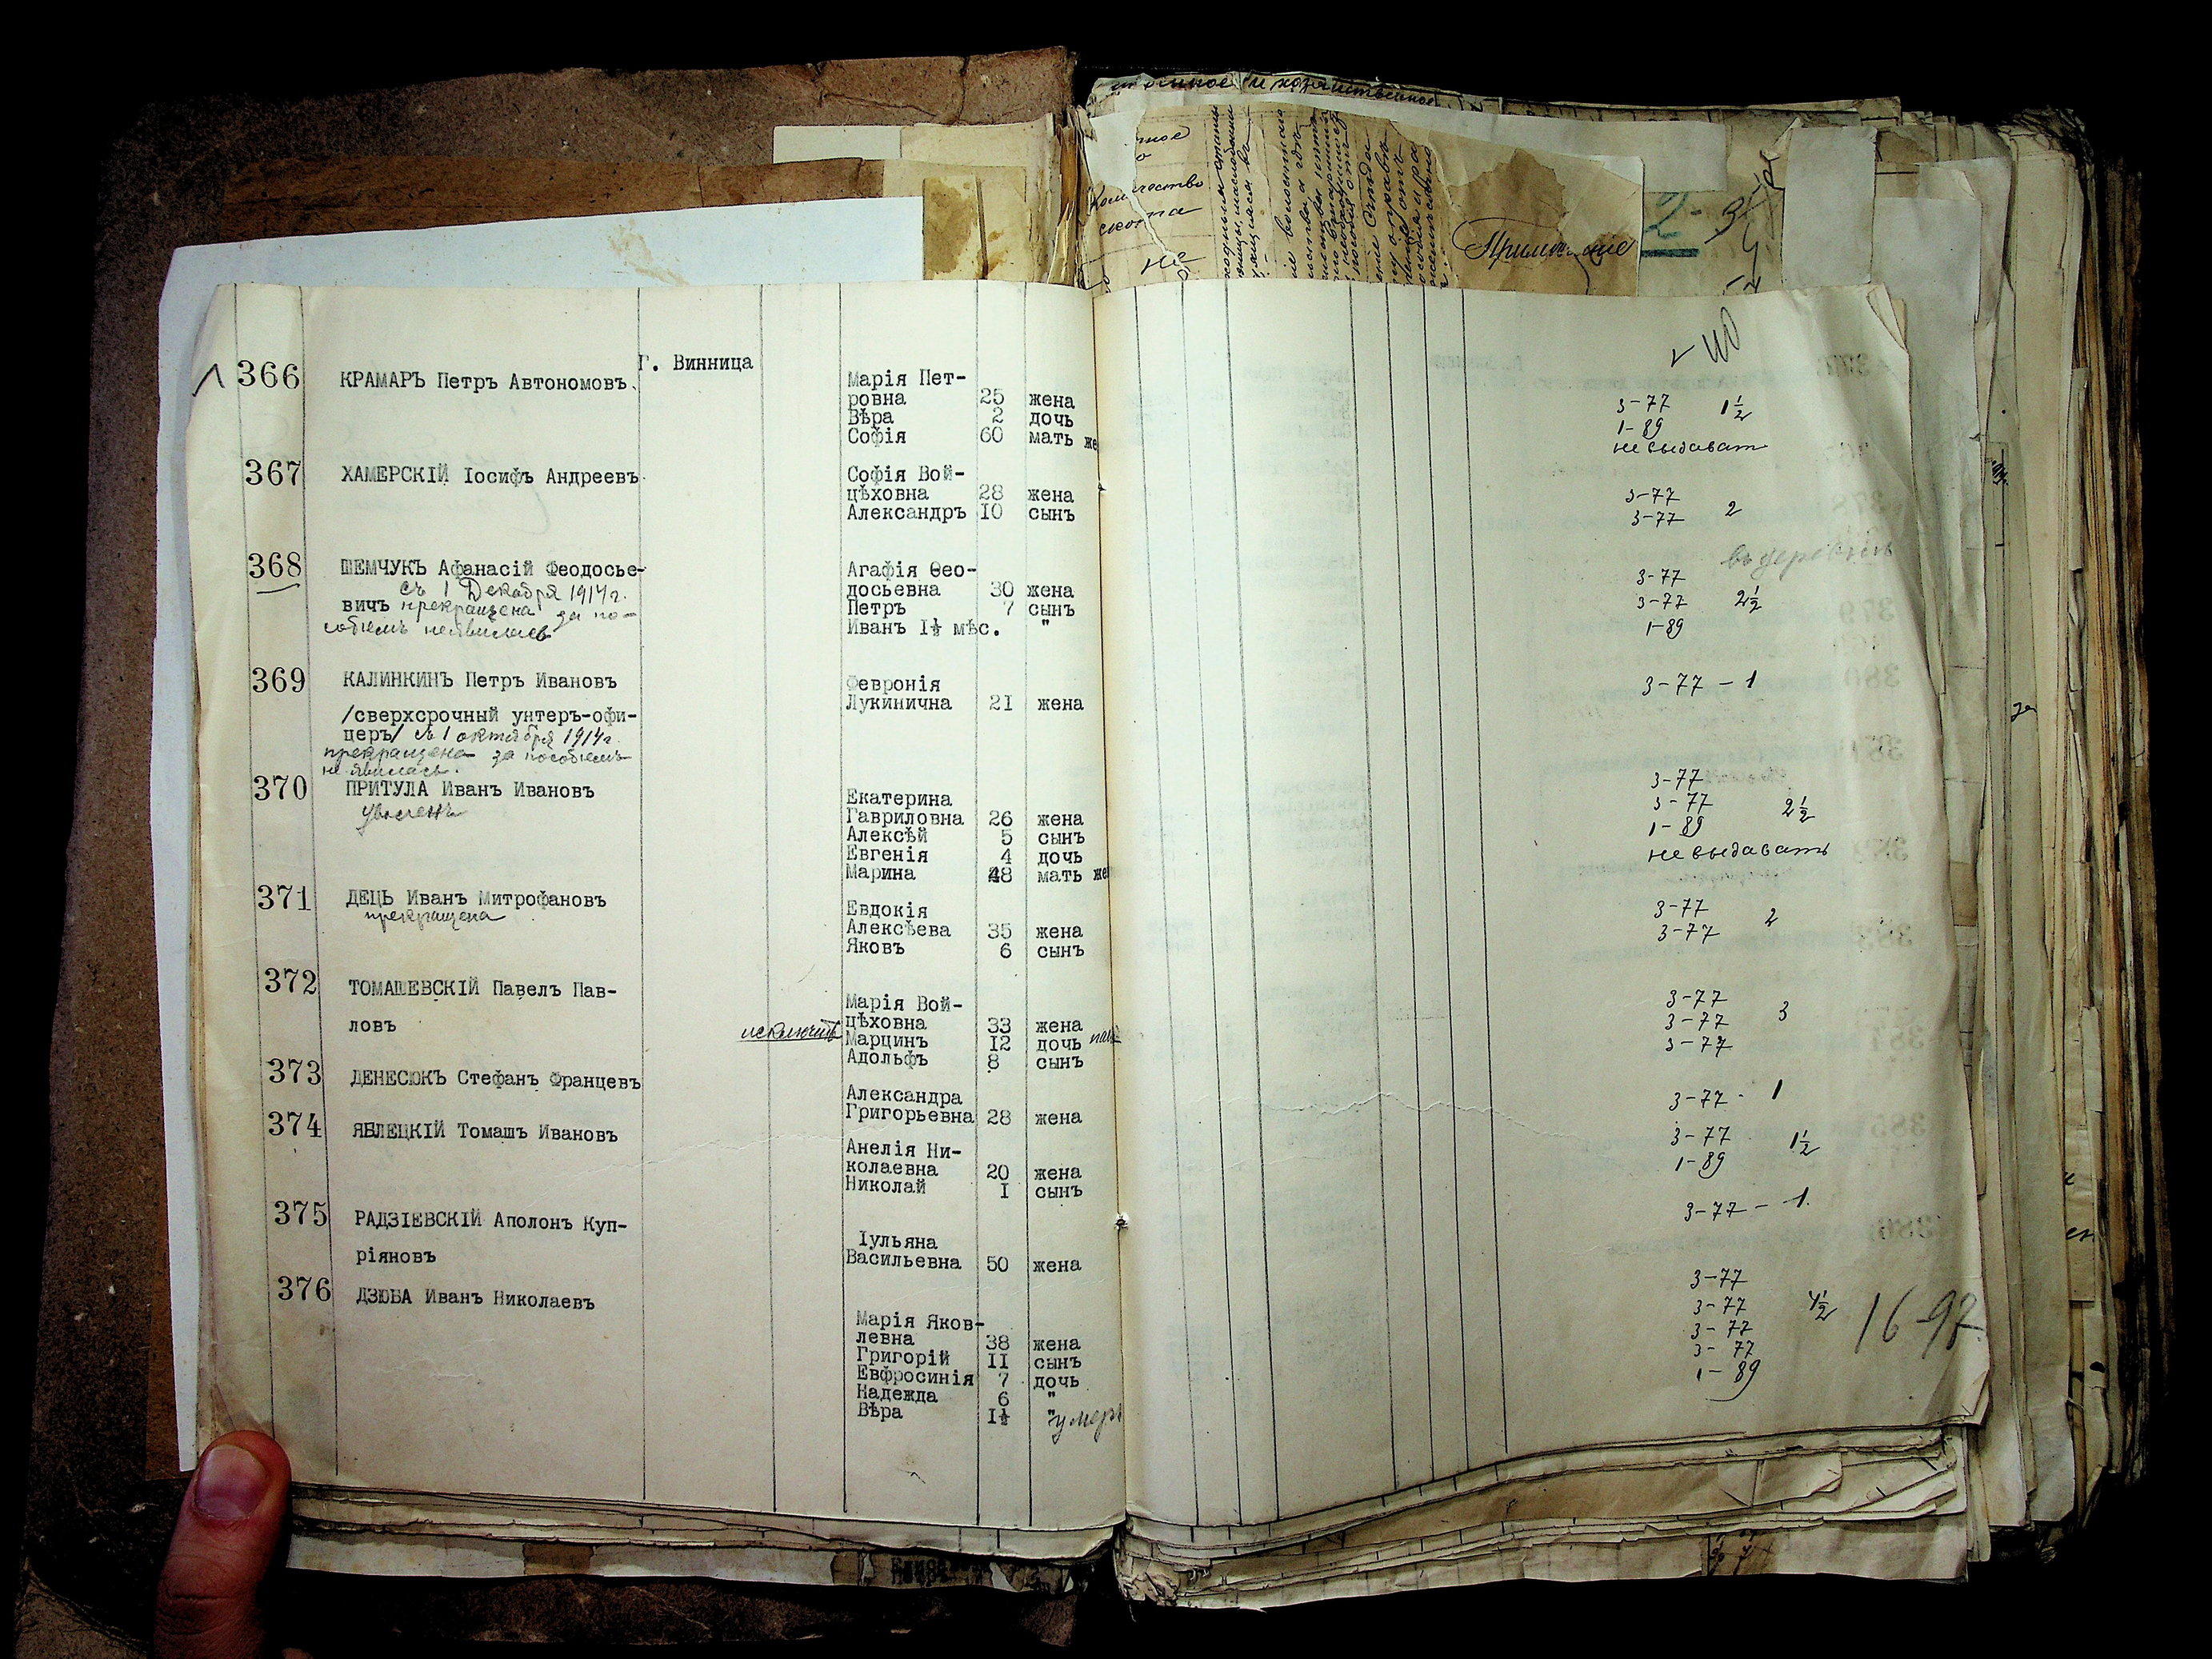 Количество
скота
не
Примѣчаніе
Г. Винница
366 КРАМАРЪ Петръ Автономовъ.
Марія Пет-
ровна 25 жена 3-77 1½
Вѣра 2 дочь 1-89
Софія 60 мать не выдават
367 ХАМЕРСКІЙ Іосифъ Андреевъ
Софія Вой-
цѣховна 28 жена 3-77
Александръ 10 сынъ 3-77 2
368 ШЕМЧУКЪ Афанасій Феодосье-
съ 1 Декабря 1914 г.
вичъ прекращена за по-
собіемъ не явилась
въ деревнѣ
Агафія Ѳео-
досьевна 30 жена 3-77
Петръ 7 сынъ 3-77 2½
Иванъ I½ мѣс. " 1-89
369 КАЛИНКИНЪ Петръ Ивановъ
/сверхсрочный унтеръ-офи-
церъ/ съ 1 октября 1914 г.
прекращена за пособіемъ
не явилась.
Февронія
Лукинична 21 жена 3-77 - 1
370 ПРИТУЛА Иванъ Ивановъ
уволенъ
Екатерина
Гавриловна 26 жена 3-77
Алексѣй 5 сынъ 3-77 2½
Евгенія 4 дочь 1-89
Марина 48 мать не выдавать
371 ДЕЦЬ Иванъ Митрофановъ
прекращена
Евдокія
Алексѣева 35 жена 3-77 2
Яковъ 6 сынъ 3-77
372 ТОМАШЕВСКІЙ Павелъ Пав-
ловъ
Марія Вой-
цѣховна 33 жена 3-77
исключить Марцинъ 12 дочь 3-77 3
Адольфъ 8 сынъ 3-77
373 ДЕНЕСЮКЪ Стефанъ Францевъ
Александра
Григорьевна 28 жена 3-77 - 1
374 ЯБЛЕЦКІЙ Томашъ Ивановъ
Анелія Ни-
колаевна 20 жена 3-77 1½
Николай I сынъ 1-89
375 РАДЗІЕВСКІЙ Аполонъ Куп-
ріяновъ
Іульяна
Васильевна 50 жена 3-77 - 1.
376 ДЗЮБА Иванъ Николаевъ
Марія Яков-
левна 38 жена 3-77
Григорій II сынъ 3-77 4½
Евфросинія 7 дочь 3-77
Надежда 6 " 3-77
Вѣра I½ " умерл 1-89
16-97